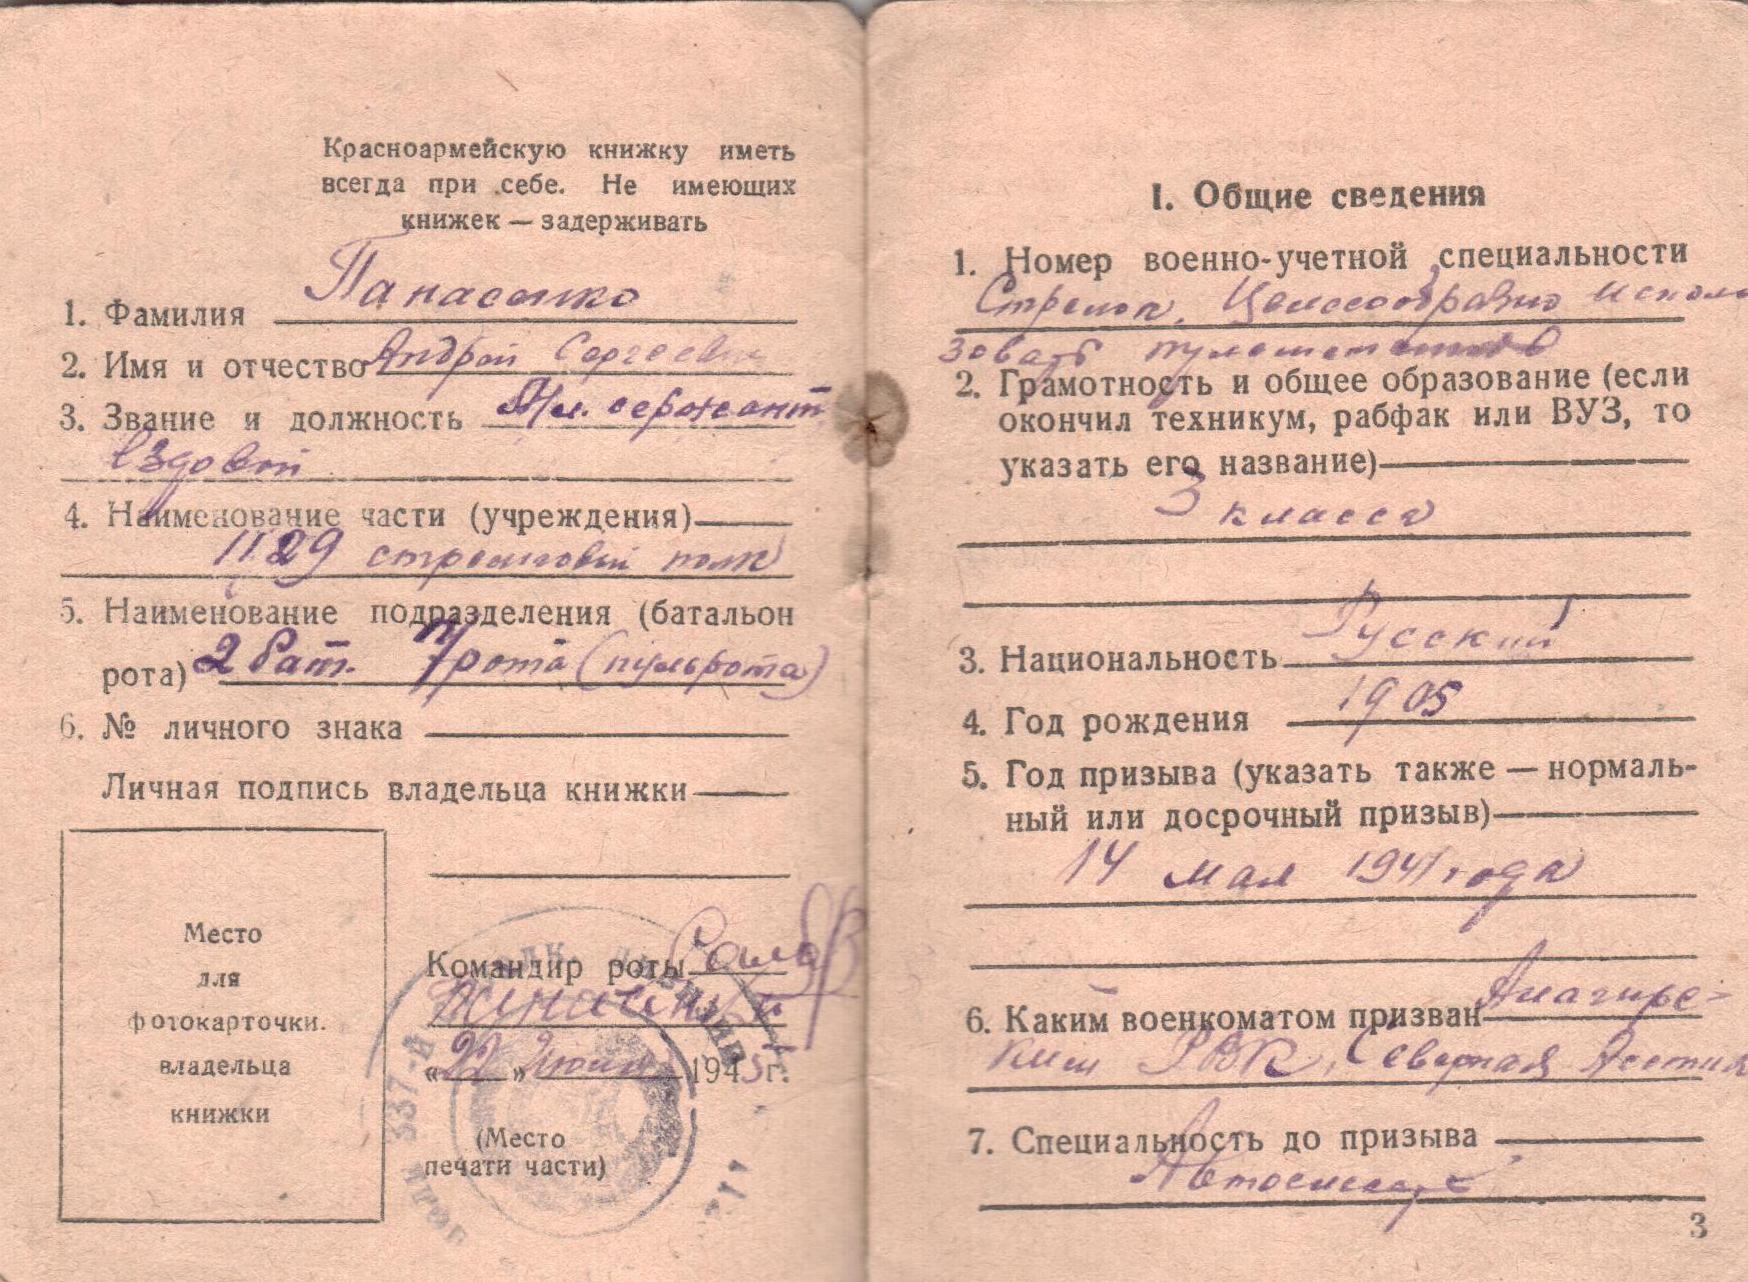 Красноармейскую книжку иметь
всегда при себе. Не имеющих
книжек — задерживать
Панасенко
1. Фамилия
2. Имя и отчество Андрей Сергеевич
3. Звание и должность Мл. сержант
ездовой
4. Наименование части (учреждения)
1129 стрелковый полк
5. Наименование подразделения (батальон
рота) 2 бат. рота (пульрота)
6. № личного знака
Личная подпись владельца книжки
Место
для
фотокарточки.
владельца
книжки
Командир роты
«22» 1945 г.
(Место
печати части)
337-й
I. Общие сведения
1. Номер военно-учетной специальности
Стрелок. Целесообразно исполь
зовать
2. Грамотность и общее образование (если
окончил техникум, рабфак или ВУЗ, то
указать его название)
3 класса
3. Национальность Русский
4. Год рождения 1905
5. Год призыва (указать также — нормаль-
ный или досрочный призыв)
14 мая 1941 года
6. Каким военкоматом призван Алагирс-
ким РВК, Северная Осетия
7. Специальность до призыва
3